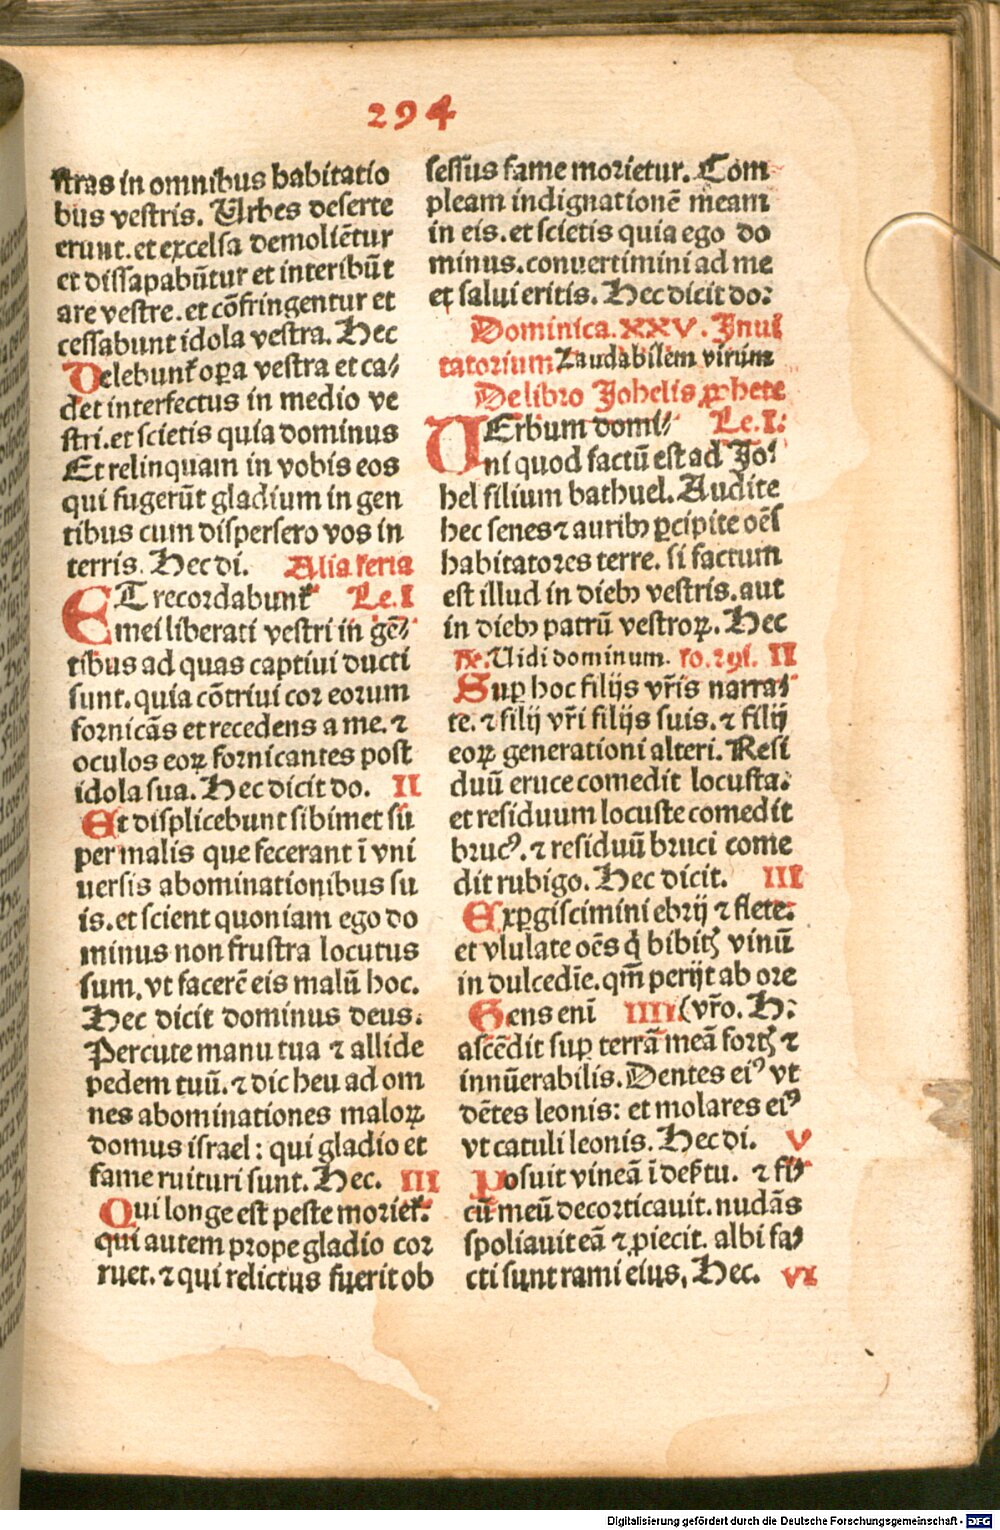 294
stras in omnibus habitatio
bus vestris. Urbes deserte
erunt. et excelsa demoliẽtur
et dissapabũtur et interibũt
are vestre. et cõfringentur et
cessabunt idola vestra. Hec
Delebunt᷑ oꝑa vestra et ca/
det interfectus in medio ve
stri. et scietis quia dominus
Et relinquam in vobis eos
qui fugerũt gladium in gen
tibus cum dispersero vos in
terris. Hec di. Alia feria
ET recordabunt᷑ Le. I
mei liberati vestri in gẽ/
tibus ad quas captiui ducti
sunt. quia cõtriui cor eorum
fornicãs et recedens a me. ⁊
oculos eoꝝ fornicantes post
idola sua. Hec dicit do. II
Et displicebunt sibimet sũ
per malis que fecerant ĩ vni
uersis abominationibus su
is. et scient quoniam ego do
minus non frustra locutus
sum. vt facerẽ eis malũ hoc.
Hec dicit dominus deus.
Percute manu tua ⁊ allide
pedem tuũ. ⁊ dic heu ad om
nes abominationes maloꝝ
domus israel: qui gladio et
fame ruituri sunt. Hec. III
Qui longe est peste moriet᷑.
qui autem prope gladio cor
ruet. ⁊ qui relictus fuerit ob
sessus fame morietur. Com
pleam indignationẽ meam
in eis. et scietis quia ego do
minus. conuertimini ad me
et salui eritis. Hec dicit do:
Dominica. XXV. Inui
tatorium Laudabilem virum
De libro Johelis ꝓphete
VErbum domi/ Le. I:
ni quod factũ est ad Jo/
hel filium bathuel. Audite
hec senes ⁊ auribꝫ ꝑcipite oẽs
habitatores terre. si factum
est illud in diebꝫ vestris. aut
in diebꝫ patrũ vestroꝝ. Hec
℞. Uidi dominum. fo. 291. II
Suꝑ hoc filijs vr̃is narra/
te. ⁊ filij vr̃i filijs suis. ⁊ filij
eoꝝ generationi alteri. Resi
duũ eruce comedit locusta.
et residuum locuste comedit
brucꝰ. ⁊ residuũ bruci come
dit rubigo. Hec dicit. III
Exꝑgiscimini ebrij ⁊ flete.
et vlulate oẽs q̇ bibitꝭ vinũ
in dulcedĩe. qm̃ perijt ab ore
Gens enĩ IIII (vr̃o. H:
ascẽdit suꝑ terrã meã fortꝭ ⁊
innũerabilis. Dentes eiꝰ vt
dẽtes leonis: et molares eiꝰ
vt catuli leonis. Hec di. V
Posuit vineã ĩ desertu. ⁊ fi/
cũ meũ decorticauit. nudãs
spoliauit eã ⁊ ꝓiecit. albi fa/
cti sunt rami eius, Hec. VI
Digitalisierung gefördert durch die Deutsche Forschungsgemeinschaft - DFG